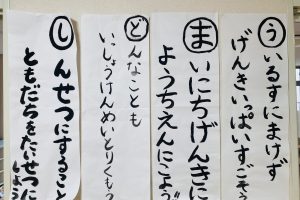 ういるすにまけず
げんきいっぱいすごそう
まいにちげんきに
ようちえんにこよう
どんなことも
いっしょうけんめいとりくもう
しんせつにすること
ともだちをたいせつに
しよう